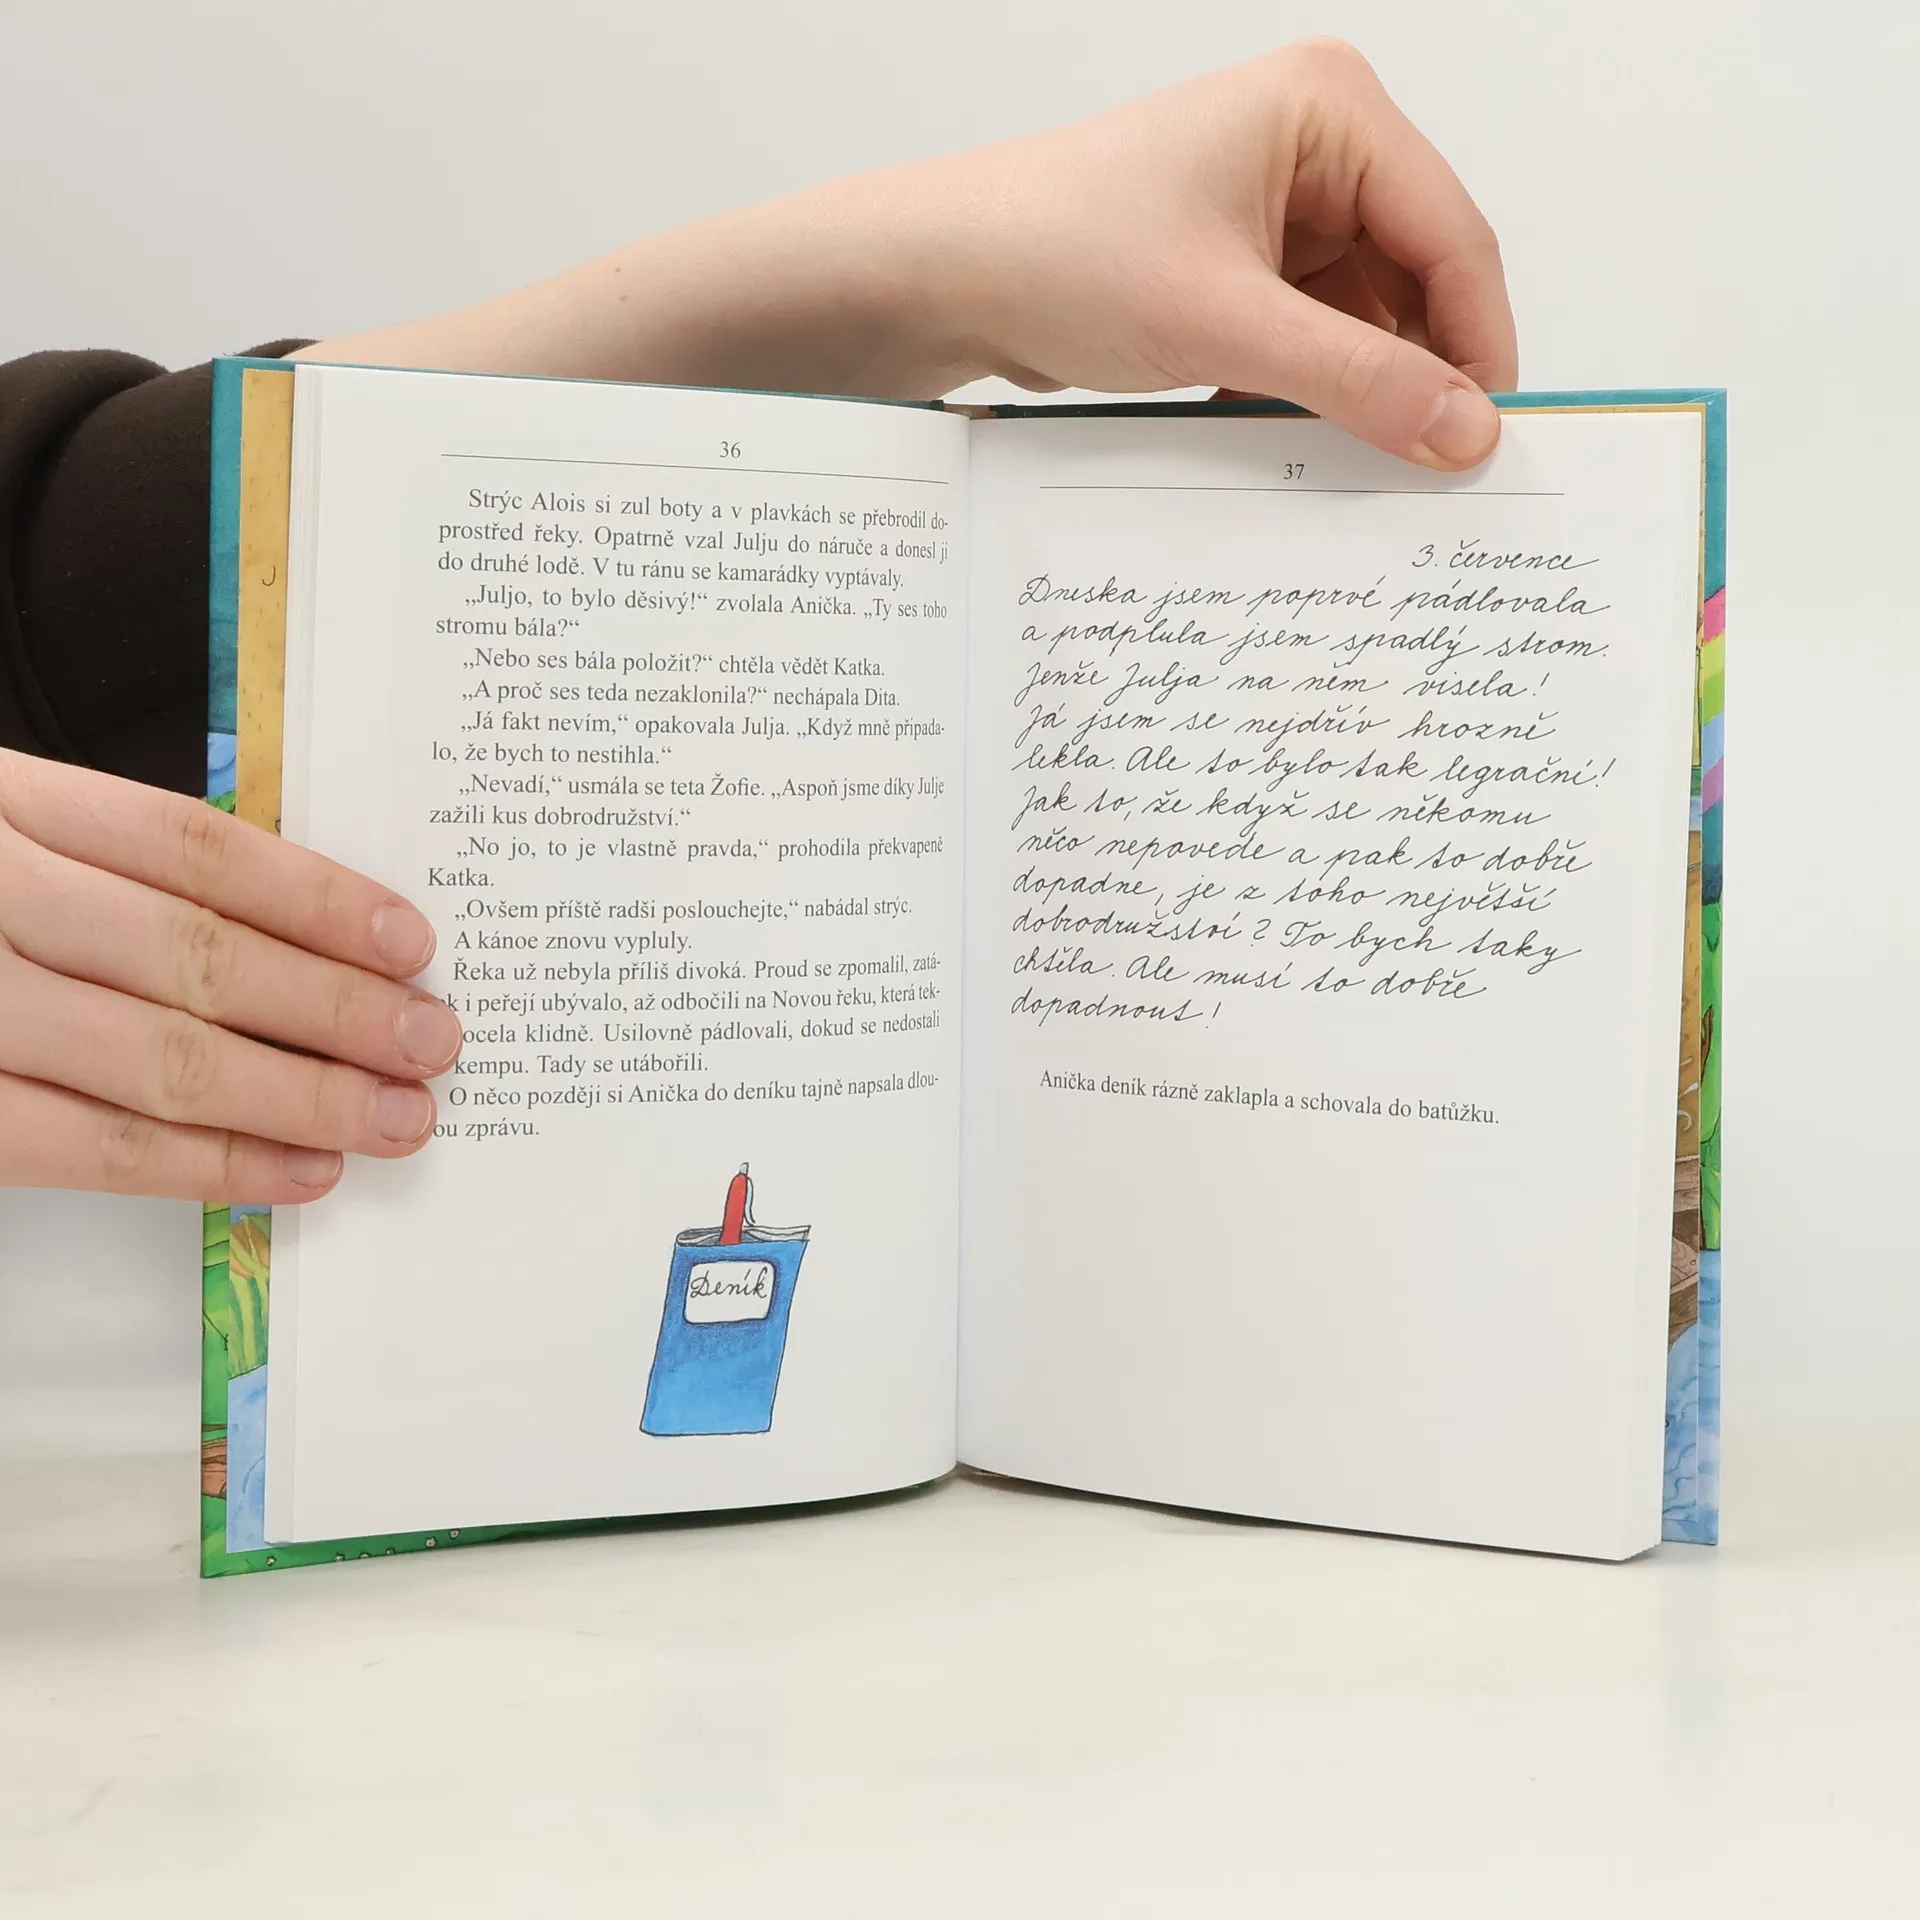 36
Strýc Alois si zul boty a v plavkách se přebrodil do-
prostřed řeky. Opatrně vzal Julju do náruče a donesl ji
do druhé lodě. V tu ránu se kamarádky vyptávaly.
„Juljo, to bylo děsivý!“ zvolala Anička. „Ty ses toho
stromu bála?“
„Nebo ses bála položit?“ chtěla vědět Katka.
„A proč ses teda nezaklonila?“ nechápala Dita.
„Já fakt nevím,“ opakovala Julja. „Když mně připada-
lo, že bych to nestihla.“
„Nevadí,“ usmála se teta Žofie. „Aspoň jsme díky Julje
zažili kus dobrodružství.“
„No jo, to je vlastně pravda,“ prohodila překvapeně
Katka.
„Ovšem příště radši poslouchejte,“ nabádal strýc.
A kánoe znovu vypluly.
Řeka už nebyla příliš divoká. Proud se zpomalil, zatá-
k i peřejí ubývalo, až odbočili na Novou řeku, která tek-
ocela klidně. Usilovně pádlovali, dokud se nedostali
kempu. Tady se utábořili.
O něco později si Anička do deníku tajně napsala dlou-
ou zprávu.
Deník
37
3. července
Dneska jsem poprvé pádlovala
a podplula jsem spadlý strom.
Jenže Julja na něm visela!
Já jsem se nejdřív hrozně
lekla. Ale to bylo tak legrační!
Jak to, že když se někomu
něco nepovede a pak to dobře
dopadne, je z toho největší
dobrodružství? To bych taky
chtěla. Ale musí to dobře
dopadnout!
Anička deník rázně zaklapla a schovala do batůžku.